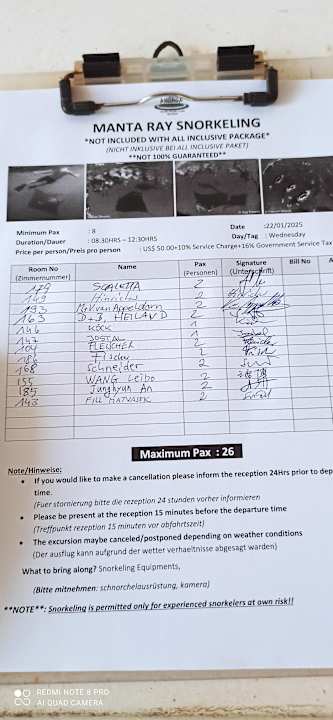 MANTA RAY SNORKELING
*NOT INCLUDED WITH ALL INCLUSIVE PACKAGE*
(NICHT INKLUSIVE BEI ALL INCLUSIVE PAKET)
**NOT 100% GUARANTEED**
Minimum Pax : 8 Date :22/01/2025
Duration/Dauer : 08.30HRS – 12:30HRS Day/Tag : Wednesday
Price per person/Preis pro person : US$ 50.00+10% Service Charge+16% Government Service Tax
Room No Name Pax Signature Bill No
(Zimmernummer) (Personen) (Unterschrift)
179 2
149 2
193 2
163 D+B HEILAND 2
146 KÖCK 1
147 JOSTAL 1
FLEISCHER 2
186 Fischer 2
168 Schneider 2
155 WANG Leibo 2
185 Junghyun An 2
143 FILL MATVASEK 2
Maximum Pax : 26
Note/Hinweise:
• If you would like to make a cancellation please inform the reception 24Hrs prior to dep
time.
(Fuer stornierung bitte die rezeption 24 stunden vorher informieren
• Please be present at the reception 15 minutes before the departure time
(Treffpunkt rezeption 15 minuten vor abfahrtszeit)
• The excursion maybe canceled/postponed depending on weather conditions
(Der ausflug kann aufgrund der wetter verhaeltnisse abgesagt warden)
What to bring along? Snorkeling Equipments,
(Bitte mitnehmen: schnorchelausrüstung, kamera)
**NOTE**: Snorkeling is permitted only for experienced snorkelers at own risk!!
REDMI NOTE 8 PRO
AI QUAD CAMERA